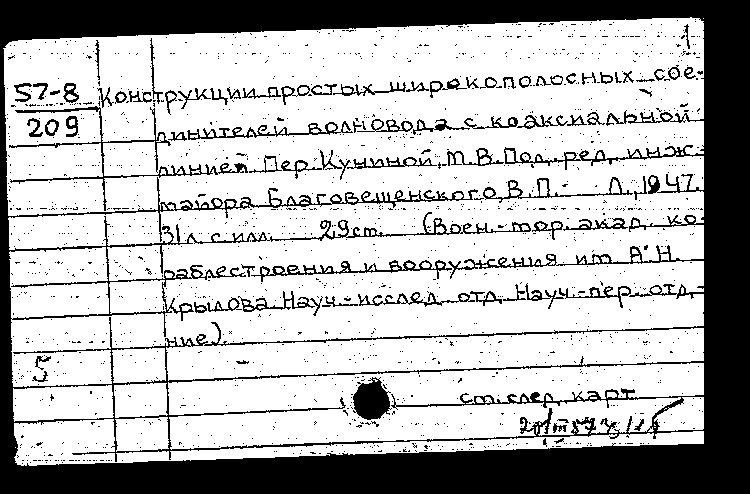 1
57-8
209
Конструкции простых широкополосных сое-
динителей волновода с коаксиальной
линией Пер. Куниной, М.В. Под. ред. инж-
майора Благовещенского, В.П. - Л., 1947.
31 л. с илл. 29 см. (Воен.-мор. акад. ко-
раблестроения и вооружения им А.Н.
Крылова. Науч.-исслед. отд. Науч.-пер. отд-
ние).
5
см. след. карт